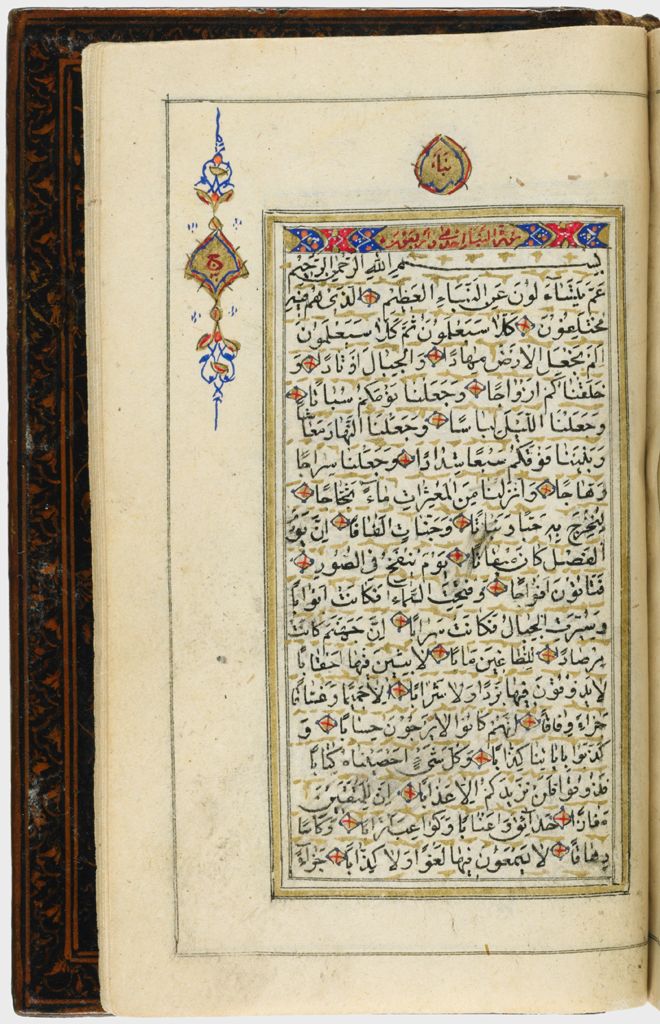 نبأ
ج
سورة النبأ احدى واربعون آية
بسم الله الرحمن الرحيم
عم يتساءلون عن النباء العظيم الذى هم فيه
مختلفون كلا سيعلمون ثم كلا سيعلمون
الم نجعل الارض مهادا والجبال اوتادا و
خلقناكم ازواجا وجعلنا نومكم سباتا
وجعلنا الليل لباسا وجعلنا النهار معاشا
وبنينا فوقكم سبعا شدادا وجعلنا سراجا
وهاجا وانزلنا من المعصرات ماء ثجاجا
لنخرج به حبا ونباتا وجنات الفافا ان يوم
الفصل كان ميقاتا يوم ينفخ فى الصور
فتاتون افواجا وفتحت السماء فكانت ابوابا
وسيرت الجبال فكانت سرابا ان جهنم كانت
مرصادا للطاغين مابا لابثين فيها احقابا
لا يذوقون فيها بردا ولا شرابا الا حميما وغساقا
جزاء وفاقا انهم كانوا لا يرجون حسابا و
كذبوا باياتنا كذابا وكل شىء احصيناه كتابا
فذوقوا فلن نزيدكم الا عذابا ان للمتقين
مفازا حدائق واعنابا وكواعب اترابا وكاسا
دهاقا لا يسمعون فيها لغوا ولا كذابا جزاء